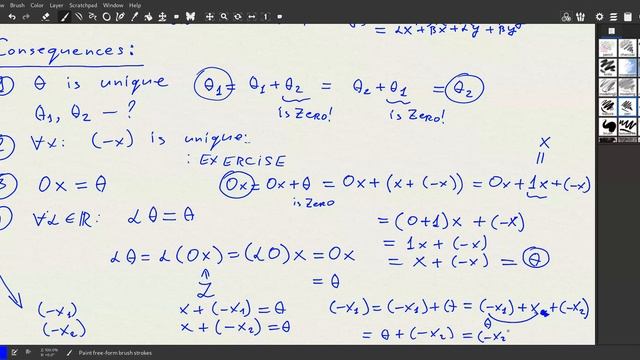 Brush Color Layer Scratchpad Window Help
= αx+βx+αy+βy
Consequences:
1 θ is unique θ₁ = θ₁+θ₂ = θ₂+θ₁ = θ₂
θ₁, θ₂ – ? is ZERO! is ZERO!
2 ∀x: (-x) is unique:
: EXERCISE
x
3 0x = θ 0x = 0x+θ = 0x+(x+(-x)) = 0x+1x+(-x)
is ZERO
∀α∈ℝ: αθ = θ = (0+1)x + (-x)
= 1x + (-x)
αθ = α(0x) = (α0)x = 0x = x + (-x) = θ
= θ
(-x₁) x+(-x₁) = θ (-x₁) = (-x₁)+θ = (-x₁)+x+(-x₂)
(-x₂) x+(-x₂) = θ θ
= θ+(-x₂) = (-x₂
Paint free-form brush strokes